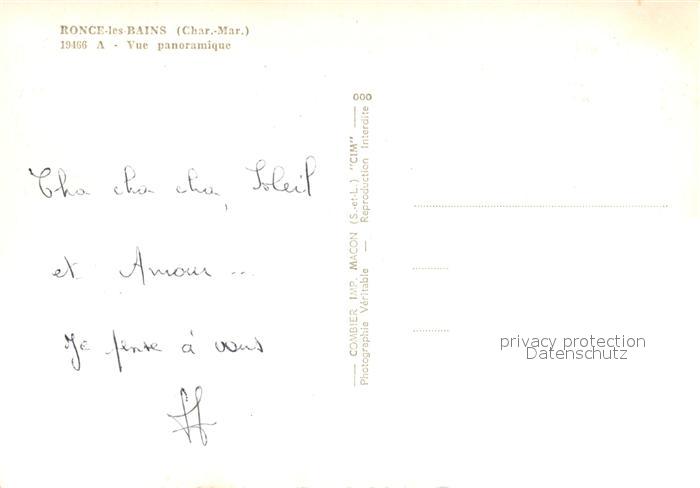 RONCE-les-BAINS (Char.-Mar.)
19466 A - Vue panoramique
Cha cha cha, Soleil
et Amour ...
Je pense à vous
000
COMBIER IMP. MACON (S.-et-L.) "CIM"
Photographie Véritable — Reproduction Interdite
privacy protection
Datenschutz